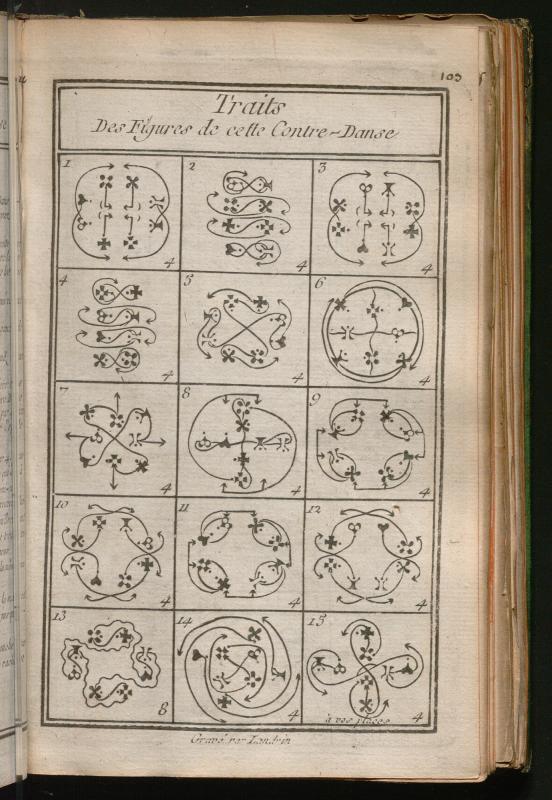 103
Traits
Des Figures de cette Contre-Danse
1 4
2 4
3 4
4 4
5 4
6 4
7 4
8 4
9 4
10 4
11 4
12 4
13 8
14 4
15 4
à vos places
Gravé par Landrin